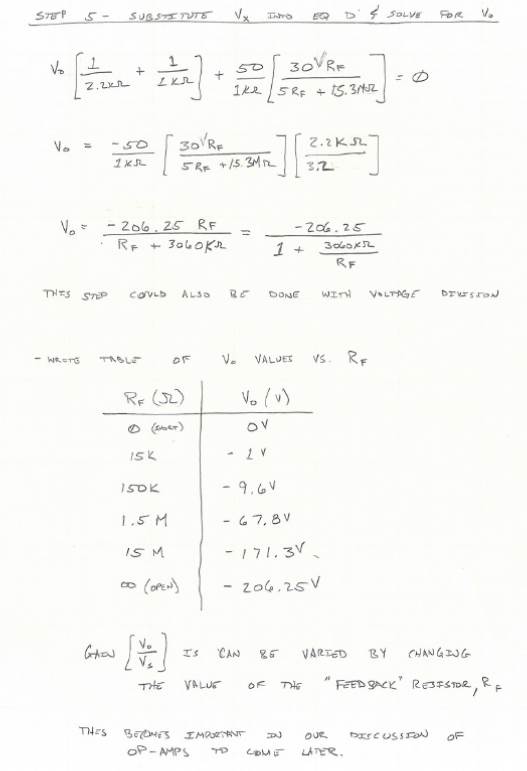 STEP 5 - SUBSTITUTE Vx INTO EQ D & SOLVE FOR Vo
Vo [1/2.2KΩ + 1/1KΩ] + 50/1KΩ [30V RF / 5RF + 15.3MΩ] = 0
Vo = -50/1KΩ [30V RF / 5RF + 15.3MΩ] [2.2KΩ / 3.2]
Vo = -206.25 RF / RF + 3060KΩ = -206.25 / 1 + 3060KΩ/RF
THIS STEP COULD ALSO BE DONE WITH VOLTAGE DIVISION
- WROTE TABLE OF Vo VALUES VS. RF
RF (Ω) Vo (V)
0 (SHORT) 0V
15K - 1V
150K - 9.6V
1.5M - 67.8V
15M - 171.3V
∞ (OPEN) - 206.25V
GAIN [Vo/Vs] IS CAN BE VARIED BY CHANGING
THE VALUE OF THE "FEEDBACK" RESISTOR, RF
THIS BECOMES IMPORTANT IN OUR DISCUSSION OF
OP-AMPS TO COME LATER.